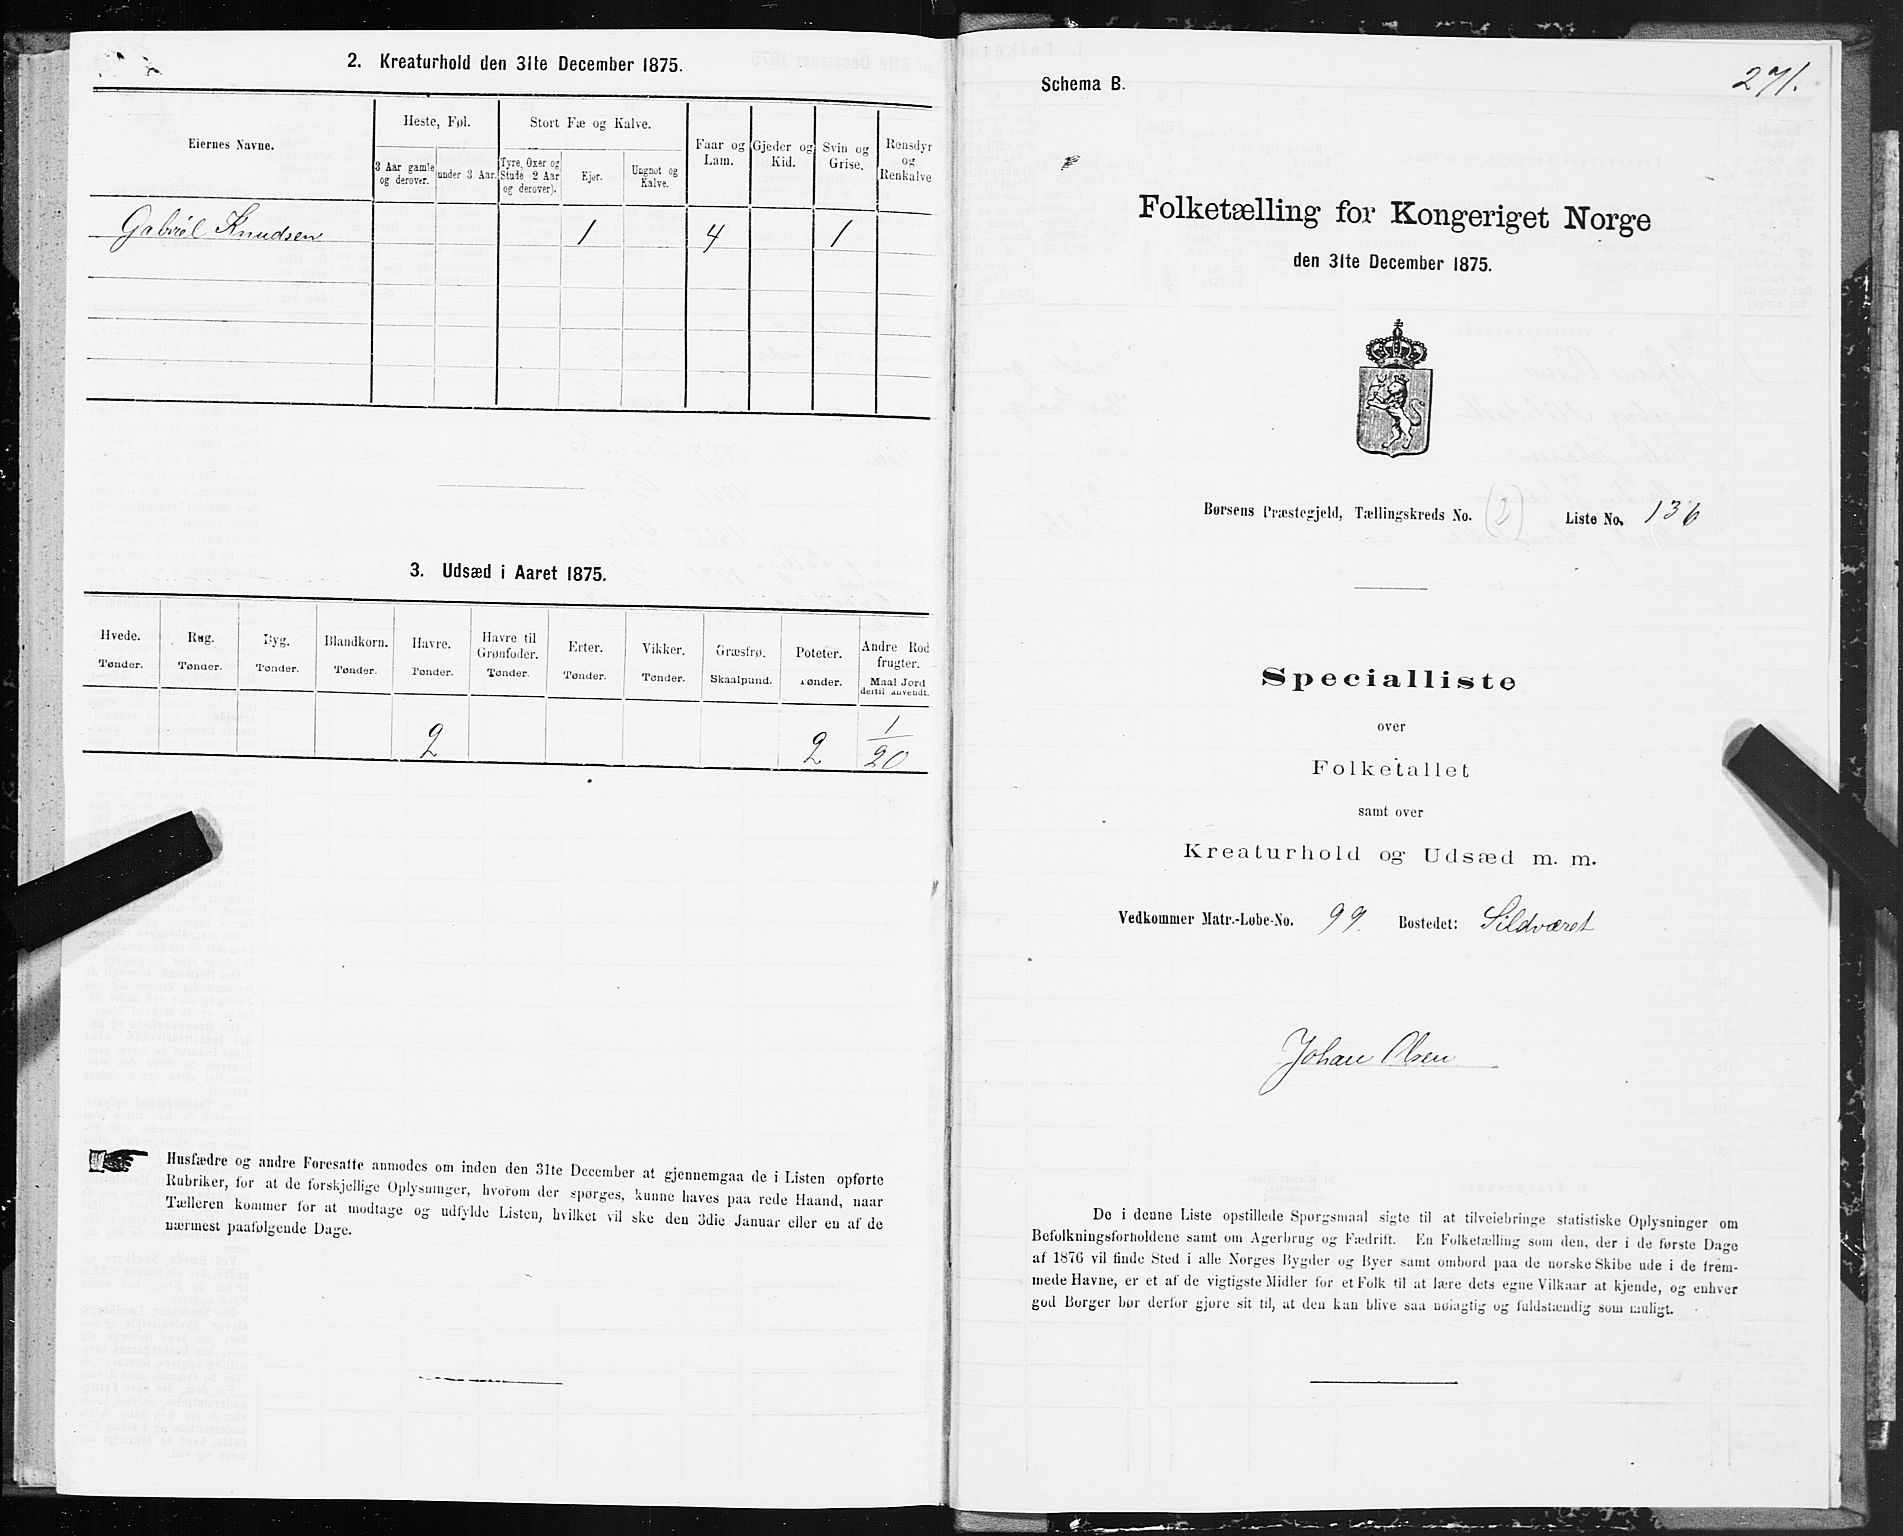 2. Kreaturhold den 31te December 1875.
Eiernes Navne.
Heste, Føl.
Stort Fæ og Kalve.
Faar og Lam.
Gjeder og Kid.
Svin og Grise.
Rensdyr og Renkalve
3 Aar gamle og derover.
under 3 Aar.
Tyre, Oxer og Stude (2 Aar og derover).
Kjør.
Ungnøt og Kalve.
Gabriel Knudsen 1 4 1
3. Udsæd i Aaret 1875.
Hvede. Rug. Byg. Blandkorn. Havre. Havre til Grønfoder. Erter. Vikker. Græsfrø. Poteter. Andre Rodfrugter.
Tønder. Tønder. Tønder. Tønder. Tønder. Tønder. Tønder. Tønder. Skaalpund. Tønder. Maal Jord dertil anvendt.
2 2 1/20
Husfædre og andre Foresatte anmodes om inden den 31te December at gjennemgaa de i Listen opførte
Rubriker, for at de forskjellige Oplysninger, hvorom der spørges, kunne haves paa rede Haand, naar
Tælleren kommer for at modtage og udfylde Listen, hvilket vil ske den 3die Januar eller en af de
nærmest paafølgende Dage.
Schema B.
271.
Folketælling for Kongeriget Norge
den 31te December 1875.
Børsens Præstegjeld, Tællingskreds No. (2) Liste No. 136
Specialliste
over
Folketallet
samt over
Kreaturhold og Udsæd m. m.
Vedkommer Matr.-Løbe-No. 99. Bostedet: Sildværet
Johan Olsen
De i denne Liste opstillede Spørgsmaal sigte til at tilveiebringe statistiske Oplysninger om
Befolkningsforholdene samt om Agerbrug og Fædrift. En Folketælling som den, der i de første Dage
af 1876 vil finde Sted i alle Norges Bygder og Byer samt ombord paa de norske Skibe ude i de frem-
mede Havne, er et af de vigtigste Midler for et Folk til at lære dets egne Vilkaar at kjende, og enhver
god Borger bør derfor gjøre sit til, at den kan blive saa nøiagtig og fuldstændig som muligt.